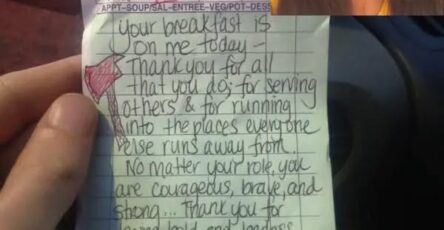 APPT-SOUP/SAL-ENTREE-VEG/POT-DESS
your breakfast is
on me today -
Thank you for all
that you do; for serving
others & for running
into the places everyone
else runs away from.
No matter your role, you
are courageous, brave, and
strong... Thank you for
being bold and